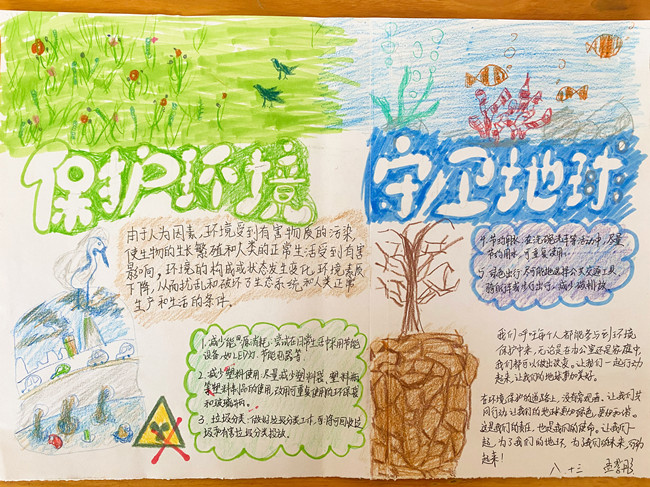 保护环境
守卫地球
由于人为因素,环境受到有害物质的污染,
使生物的生长繁殖和人类的正常生活受到有害
影响,环境的构成或状态发生变化,环境素质
下降,从而扰乱和破坏了生态系统和人类正常
生产和生活的条件。
1.减少能源消耗:尝试在日常生活中采用节能
设备,如LED灯、节能电器等。
2.减少塑料使用:尽量减少塑料袋、塑料瓶
等塑料制品的使用,改用可重复使用的环保袋
和玻璃瓶。
3.垃圾分类:做好垃圾分类工作,
垃圾和有害垃圾分类投放。
4.节约用水:在洗碗洗手等活动中,尽量
节约用水,可重复使用。
5.绿色出行:尽可能地选择公共交通工具、
骑自行车或步行出行,减少碳排放。
我们呼吁每个人都能参与到环境
保护中来,无论是在办公室还是家庭中,
我们都可以做出改变。让我们一起行动
起来,让我们的地球更加美好。
在环境保护的道路上,没有旁观者。让我们共
同行动,让我们的地球更加绿色、更加和谐。
这是我们的责任,也是我们的使命。让我们一
起,为了我们的地球,为我们的未来,行动
起来!
八 十三